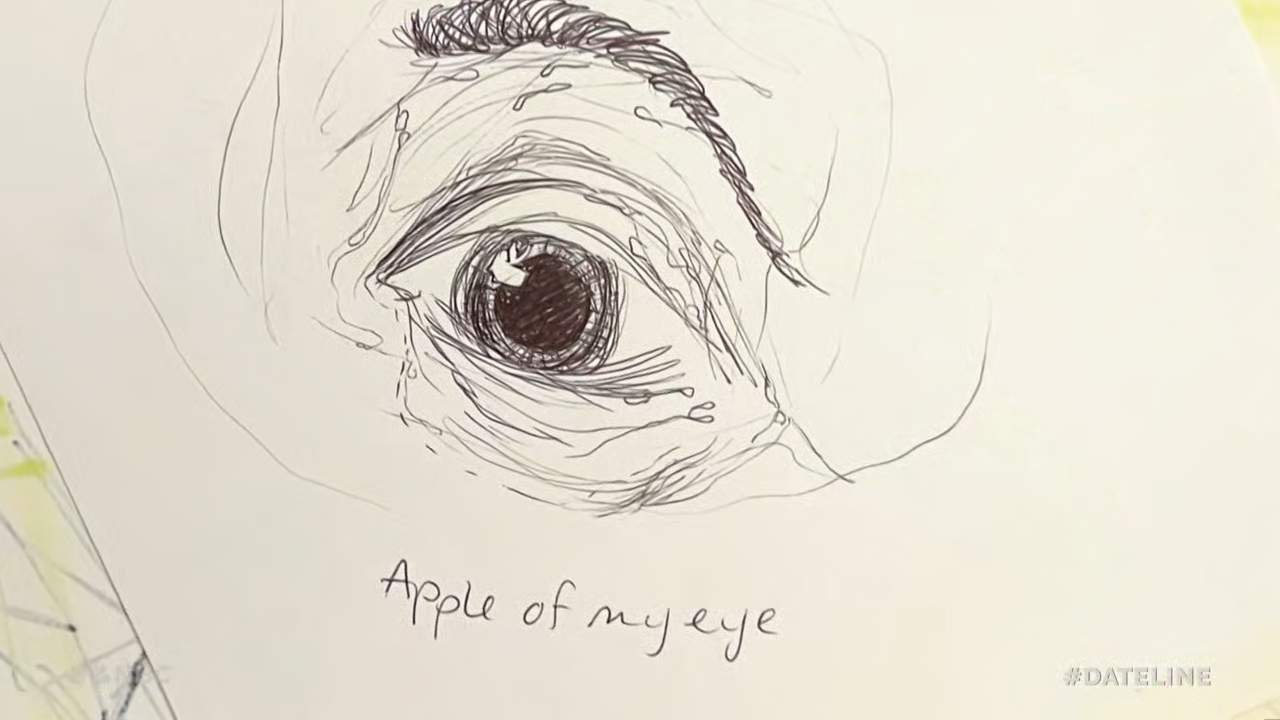 Apple of my eye
#DATELINE